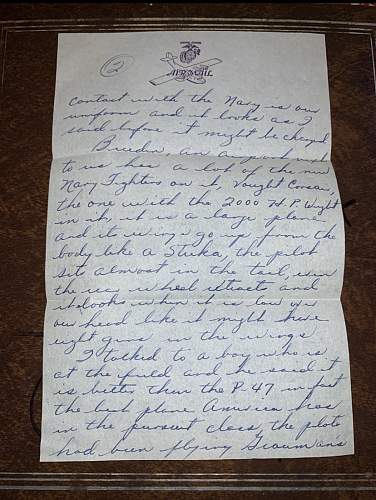 2
AIR MAIL
contact with the Navy is our
uniform and it looks as I
said before it might be changed
Burdin, an air next
to us has a lot of the new
Navy Fighters on it, Vought Corsair,
the one with the 2000 H.P. Wright
in it, it is a large plane
and its wings go up from the
body like a Stuka, the pilot
sits almost in the tail, even
the rear wheel retracts and
it looks when it is low over
our head like it might have
eight guns in the wings
I talked to a boy who is
at the field and he said it
is better than the P-47 in fact
the best plane America has
in the pursuit class, the pilots
had been flying Grauman's